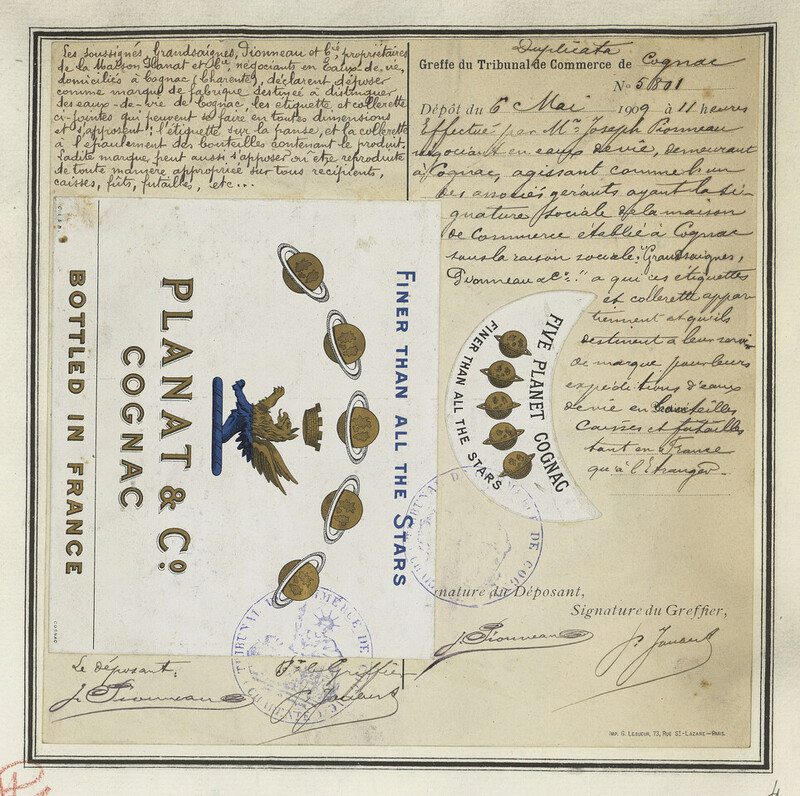 Les soussignés, Grandsaignes, Pionneau et Cie, propriétaires
de la Maison Planat et Cie, négociants en Eaux-de-vie,
domiciliés à Cognac, (Charente), déclarent déposer
comme marque de fabrique destinée à distinguer
des eaux-de-vie de Cognac, les étiquette et collerette
ci-jointes qui peuvent se faire en toutes dimensions
et s'apposent: l'étiquette sur la panse, et la collerette
à l'épaulement des bouteilles contenant le produit.
Ladite marque, peut aussi s'apposer ou être reproduite
de toute manière appropriée sur tous récipients,
caisses, fûts, futailles, etc...
Duplicata
Greffe du Tribunal de Commerce de Cognac
No 5801
Dépôt du 6 Mai 1909 à 11 heures
Effectué par Mr. Joseph Pionneau
négociant en eaux de vie, demeurant
à Cognac, agissant comme l'un
des associés gérants ayant la si-
gnature sociale de la maison
de Commerce établie à Cognac
sous la raison sociale: "Grandsaignes,
Pionneau & Co." a qui ces étiquettes
et collerette appar-
tiennent et qu'ils
destinent à leur servir
de marque pour leurs
expéditions d'eaux
de vie en bouteilles
caisses et futailles
tant en France
qu'à l'Etranger.
FINER THAN ALL THE STARS
PLANAT & Co.
COGNAC
BOTTLED IN FRANCE
COGNAC
FIVE PLANET COGNAC
FINER THAN ALL THE STARS
TRIBUNAL DE COMMERCE DE COGNAC
TRIBUNAL DE COMMERCE DE
Signature du Déposant,
Signature du Greffier,
J. Pionneau
P. Jaubert
Le déposant:
Pr le Greffier
J. Pionneau
P. Jaubert
IMP. G. LEZUEUR, 73, RUE ST-LAZARE—PARIS.